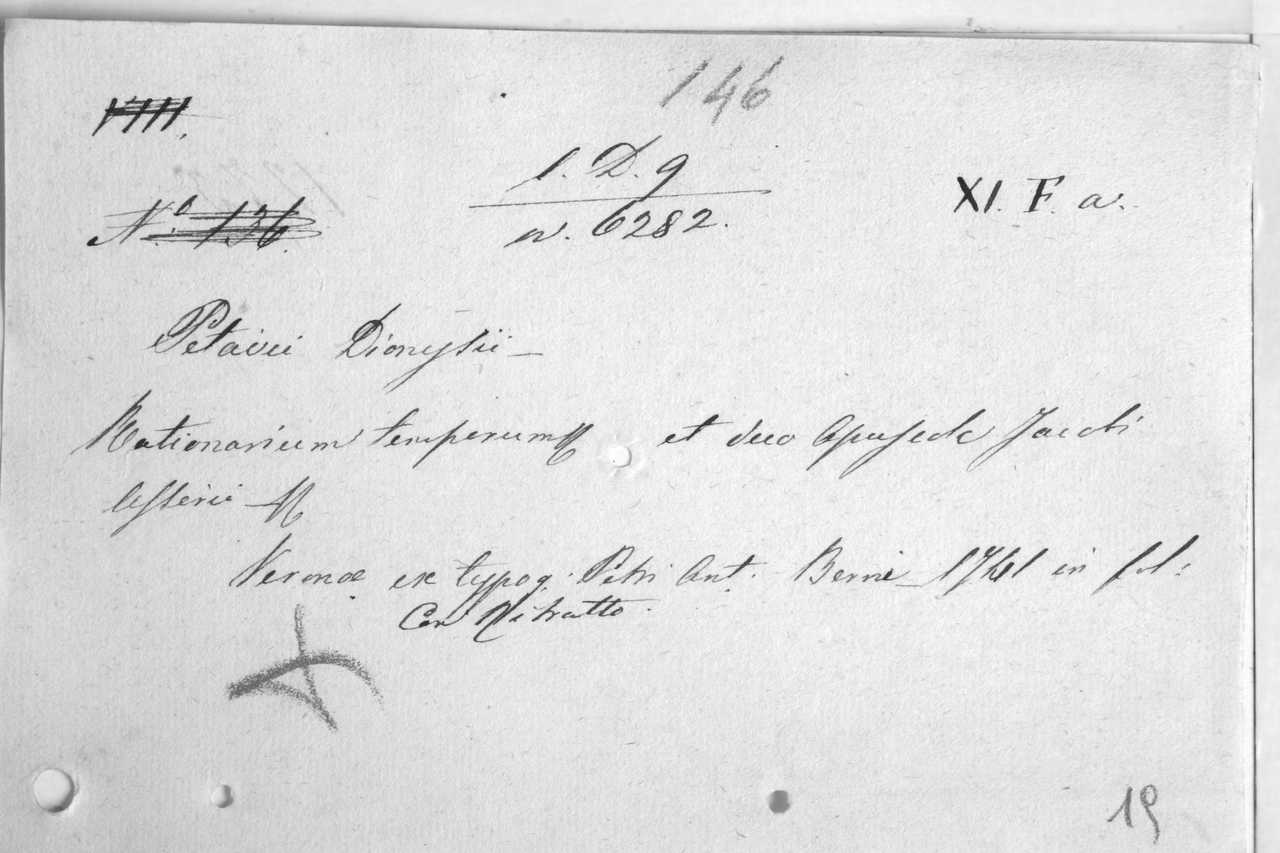 146
VIII.
1. D. 9
XI. F. a.
N.º 136.
n. 6282.
Petavii Dionysii —
Rationarium temporum et duo Opuscola Jacobi
Usserii —
Veronæ ex typog. Petri Ant. Berni 1741 in fol:
Con Ritratto.
19